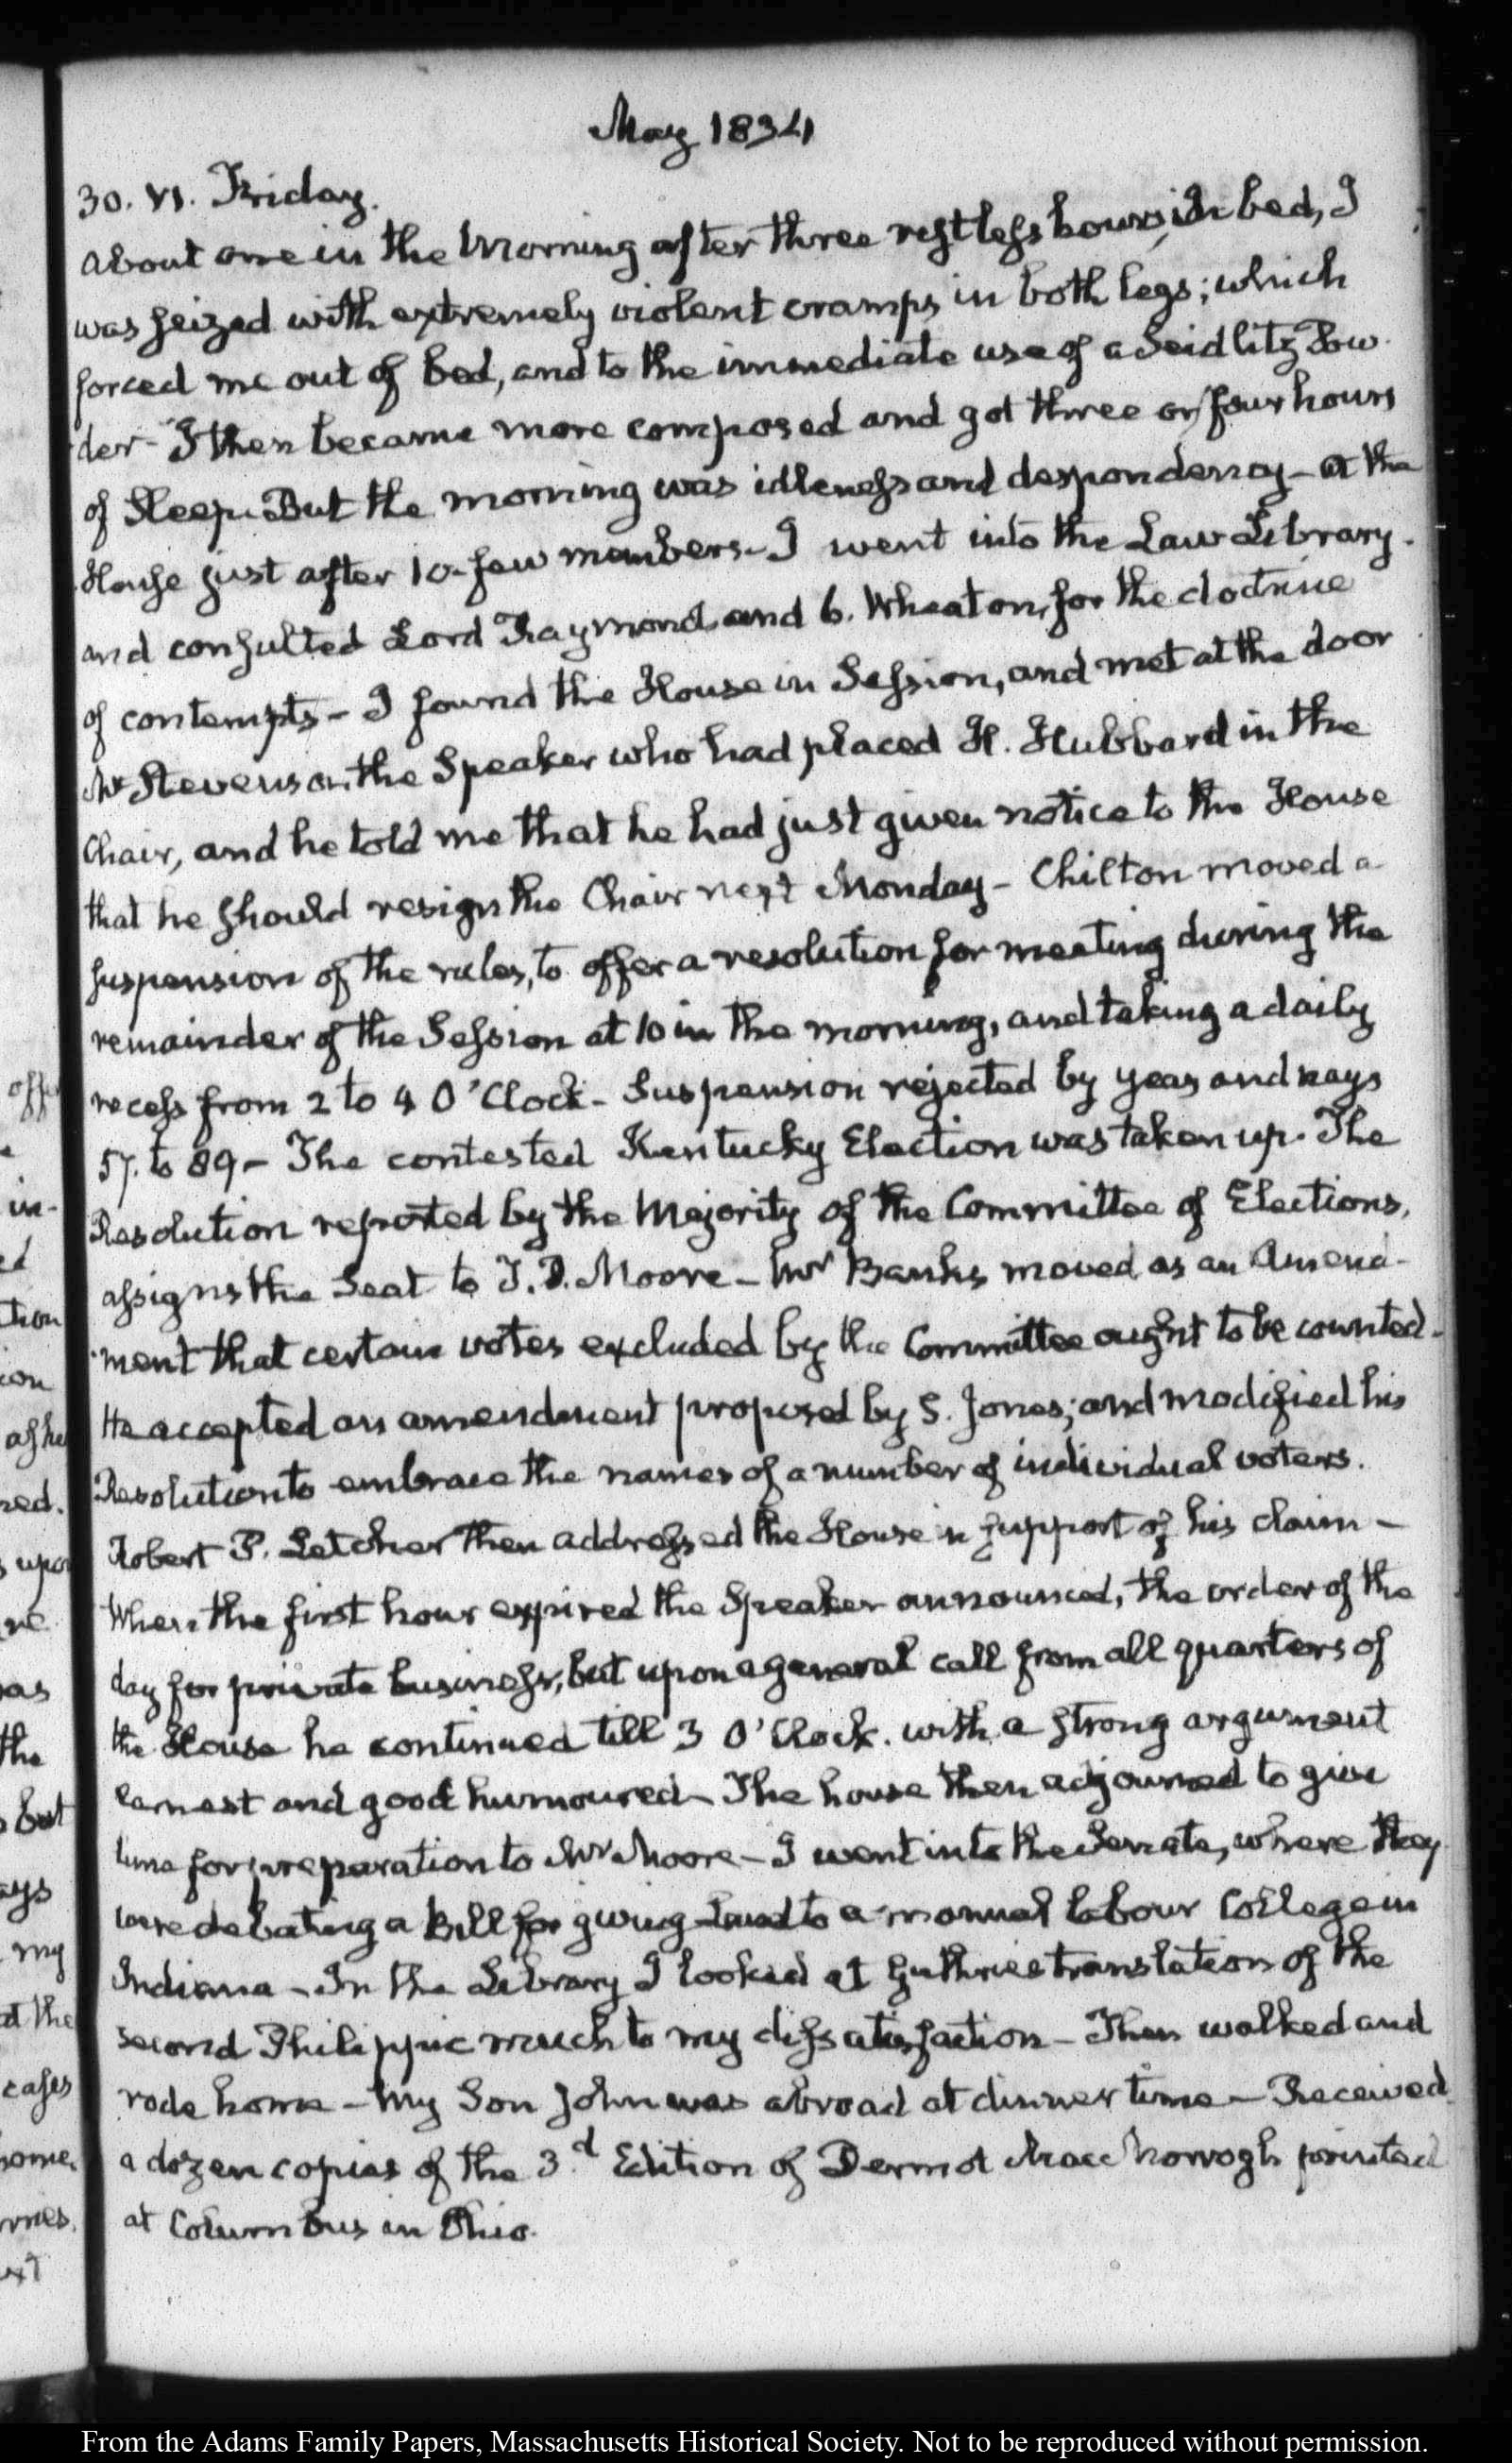 May 1834
30. VI. Friday.
About one in the Morning after three restless hours, in bed, I
was seized with extremely violent cramps in both legs; which
forced me out of bed, and to the immediate use of a Seidlitz Pow-
der- I then became more composed and got three or four hours
of Sleep. But the morning was idleness and despondency- at the
House just after 10- few members- I went into the Law Library.
and consulted Lord Raymond and 6. Wheaton, for the doctrine
of contempts- I found the House in Session, and met at the door
Mr Stevenson, the Speaker who had placed H. Hubbard in the
Chair, and he told me that he had just given notice to the House
that he should resign the Chair next Monday- Chilton moved a
suspension of the rules, to offer a resolution for meeting during the
remainder of the Session at 10 in the morning, and taking a daily
recess from 2 to 4 O'Clock- Suspension rejected by yeas and nays
57. to 89- The contested Kentucky Election was taken up. The
Resolution reported by the Majority of the Committee of Elections,
assigns the Seat to T. P. Moore- Mr Banks moved as an Amend-
ment that certain votes excluded by the Committee ought to be counted-
He accepted an amendment proposed by S. Jones; and modified his
Resolution to embrace the names of a number of individual voters.
Robert P. Letcher then addressed the House in support of his claim-
When the first hour expired the Speaker announced, the order of the
day for private business, but upon a general call from all quarters of
the House he continued till 3 O'Clock. with a strong argument
earnest and good humoured- The house then adjourned to give
time for preparation to Mr Moore- I went into the Senate, where they
were debating a Bill for giving Land to a manual labour College in
Indiana- In the Library I looked at Guthries translation of the
second Philippic much to my dissatisfaction- Then walked and
rode home- My Son John was abroad at dinner time- Received
a dozen copies of the 3.d Edition of Dermot MacMorrogh printed
at Columbus in Ohio.
off
in-
ed
tion
ion
as he
red.
s upon
ve
as
the
but
ays
my
at the
cases
home.
ries.
xt
From the Adams Family Papers, Massachusetts Historical Society. Not to be reproduced without permission.